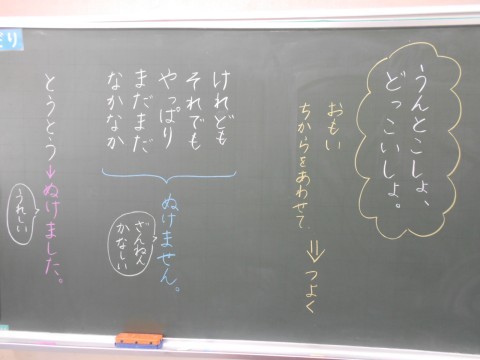 うんとこしょ、
どっこいしょ。
おもい
ちからをあわせて、⇒つよく
けれども
それでも
やっぱり
まだまだ
なかなか
ぬけません。
ざんねん
かなしい
とうとう→ぬけました。
うれしい